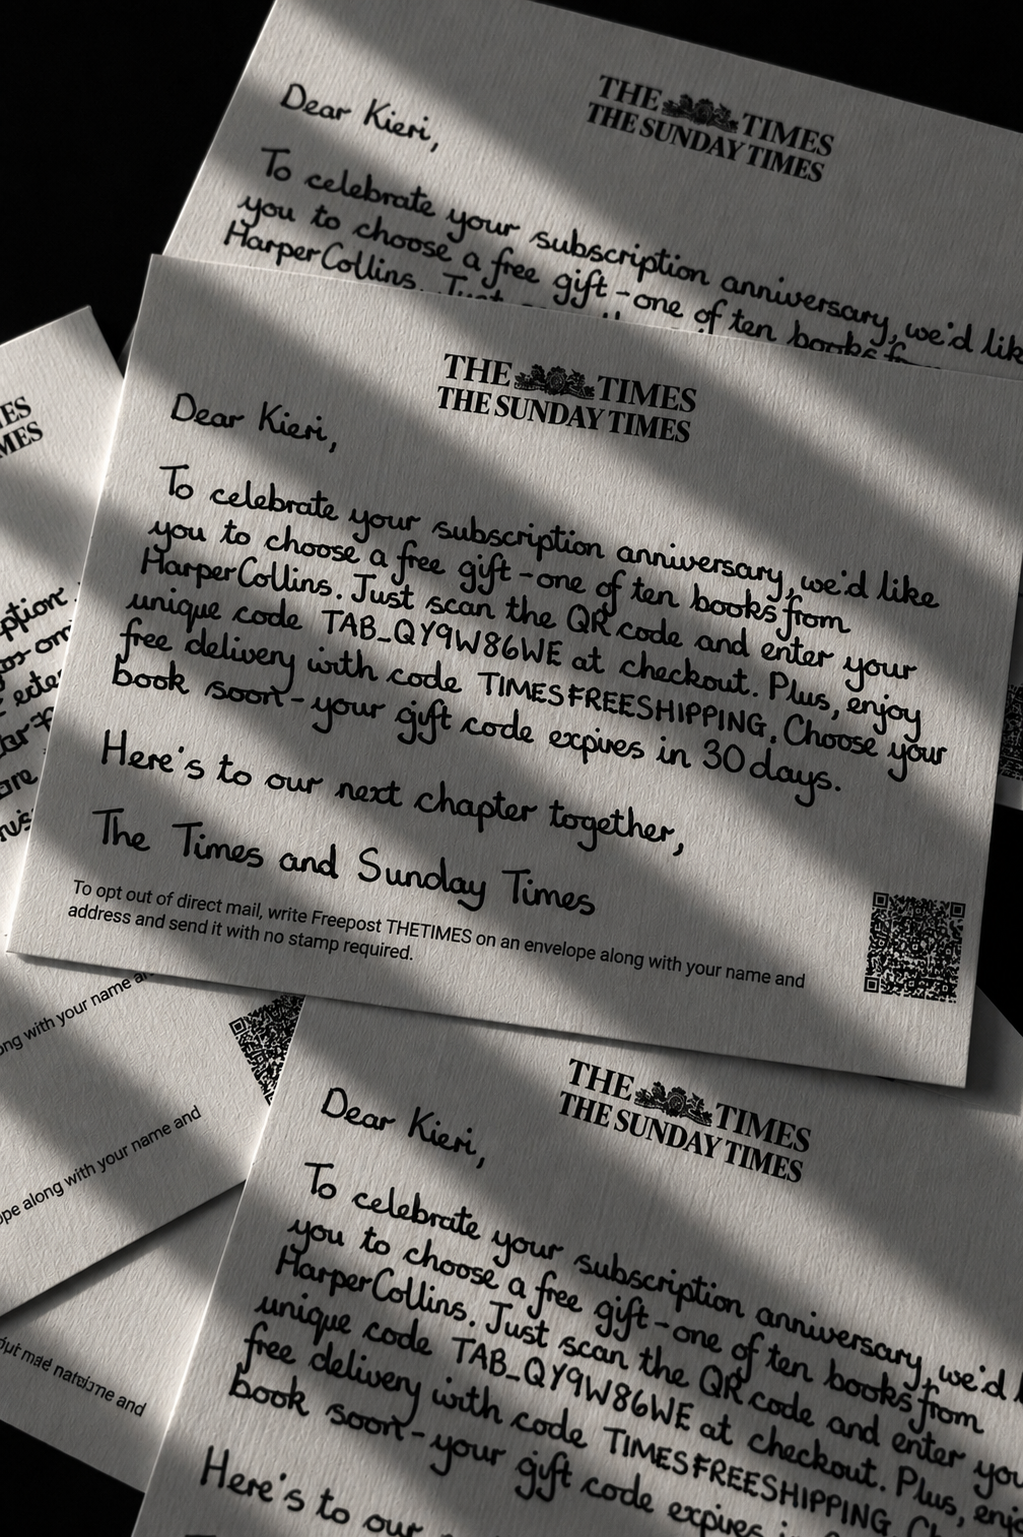 Dear Kieri,
THE TIMES
THE SUNDAY TIMES
To celebrate your subscription anniversary, we'd like
you to choose a free gift - one of ten books
HarperCollins. Just
THE TIMES
THE SUNDAY TIMES
Dear Kieri,
To celebrate your subscription anniversary, we'd like
you to choose a free gift - one of ten books from
HarperCollins. Just scan the QR code and enter your
unique code TAB_QY9W86WE at checkout. Plus, enjoy
free delivery with code TIMESFREESHIPPING. Choose your
book soon - your gift code expires in 30 days.
Here's to our next chapter together,
The Times and Sunday Times
To opt out of direct mail, write Freepost THETIMES on an envelope along with your name and
address and send it with no stamp required.
along with your name and
THE TIMES
THE SUNDAY TIMES
Dear Kieri,
To celebrate your subscription anniversary, we'd
you to choose a free gift - one of ten books from
HarperCollins. Just scan the QR code and enter
unique code TAB_QY9W86WE at checkout. Plus,
free delivery with code TIMESFREESHIPPING.
book soon - your gift code expires
Here's to our